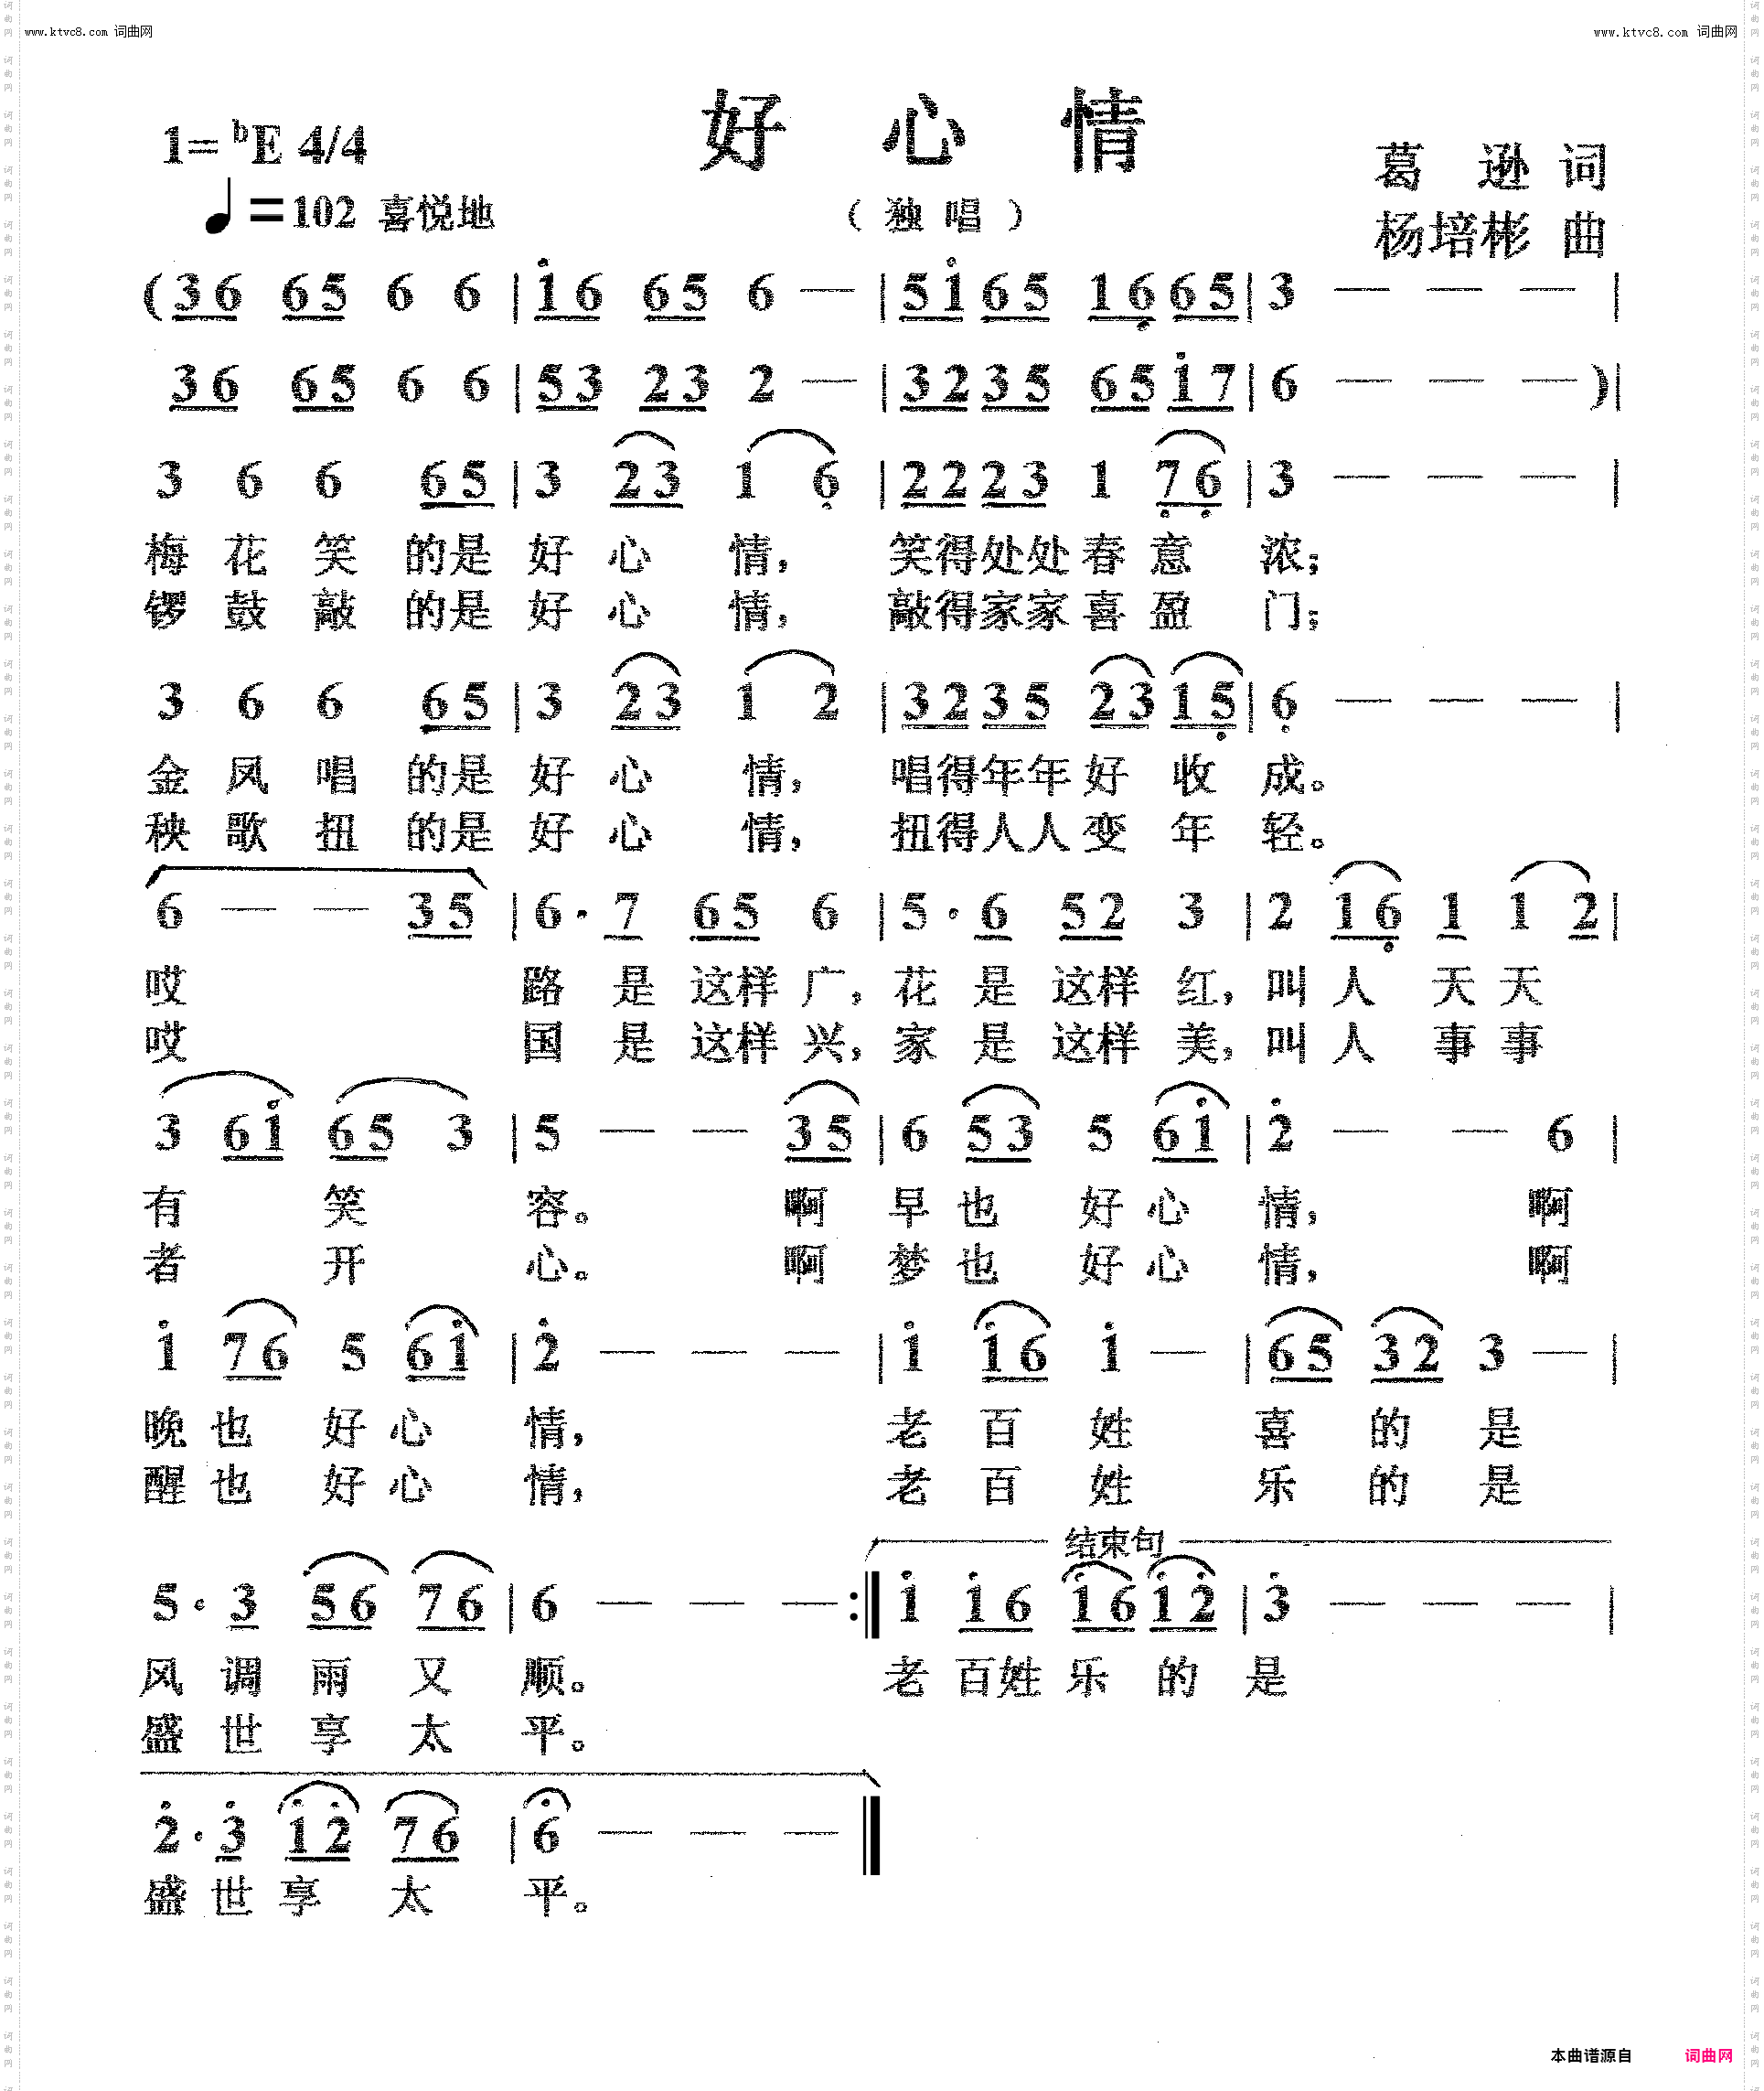 www.ktvc8.com 词曲网 www.ktvc8.com 词曲网
好心情
1= bE 4/4
♩=102 喜悦地
(独唱)
葛 逊 词
杨培彬 曲
(3 6 6 5 6 6 | 1̇ 6 6 5 6 — | 5 1̇ 6 5 1 6̣ 6 5 | 3 — — — |
3 6 6 5 6 6 | 5 3 2 3 2 — | 3 2 3 5 6 5 1̇ 7 | 6 — — — )|
3 6 6 6 5 | 3 2 3 1 6̣ | 2 2 2 3 1 7̣ 6̣ | 3 — — — |
梅 花 笑 的是 好 心 情, 笑得处处春 意 浓;
锣 鼓 敲 的是 好 心 情, 敲得家家喜 盈 门;
3 6 6 6 5 | 3 2 3 1 2 | 3 2 3 5 2 3 1 5̣ | 6̣ — — — |
金 凤 唱 的是 好 心 情, 唱得年年好 收 成。
秧 歌 扭 的是 好 心 情, 扭得人人变 年 轻。
6 — — 3 5 | 6· 7 6 5 6 | 5· 6 5 2 3 | 2 1 6̣ 1 1 2 |
哎 路 是 这样 广, 花 是 这样 红, 叫 人 天 天
哎 国 是 这样 兴, 家 是 这样 美, 叫 人 事 事
3 6 1̇ 6 5 3 | 5 — — 3 5 | 6 5 3 5 6 1̇ | 2̇ — — 6 |
有 笑 容。 啊 早 也 好 心 情, 啊
者 开 心。 啊 梦 也 好 心 情, 啊
1̇ 7 6 5 6 1̇ | 2̇ — — — | 1̇ 1̇ 6 1̇ — | 6 5 3 2 3 — |
晚 也 好 心 情, 老 百 姓 喜 的 是
醒 也 好 心 情, 老 百 姓 乐 的 是
结束句
5· 3 5 6 7 6 | 6 — — — :‖ 1̇ 1̇ 6 1̇ 6 1̇ 2̇ | 3̇ — — — |
风 调 雨 又 顺。 老 百姓 乐 的 是
盛 世 享 太 平。
2̇· 3̇ 1̇ 2̇ 7 6 | 6 — — — ‖
盛 世 享 太 平。
本曲谱源自 词曲网